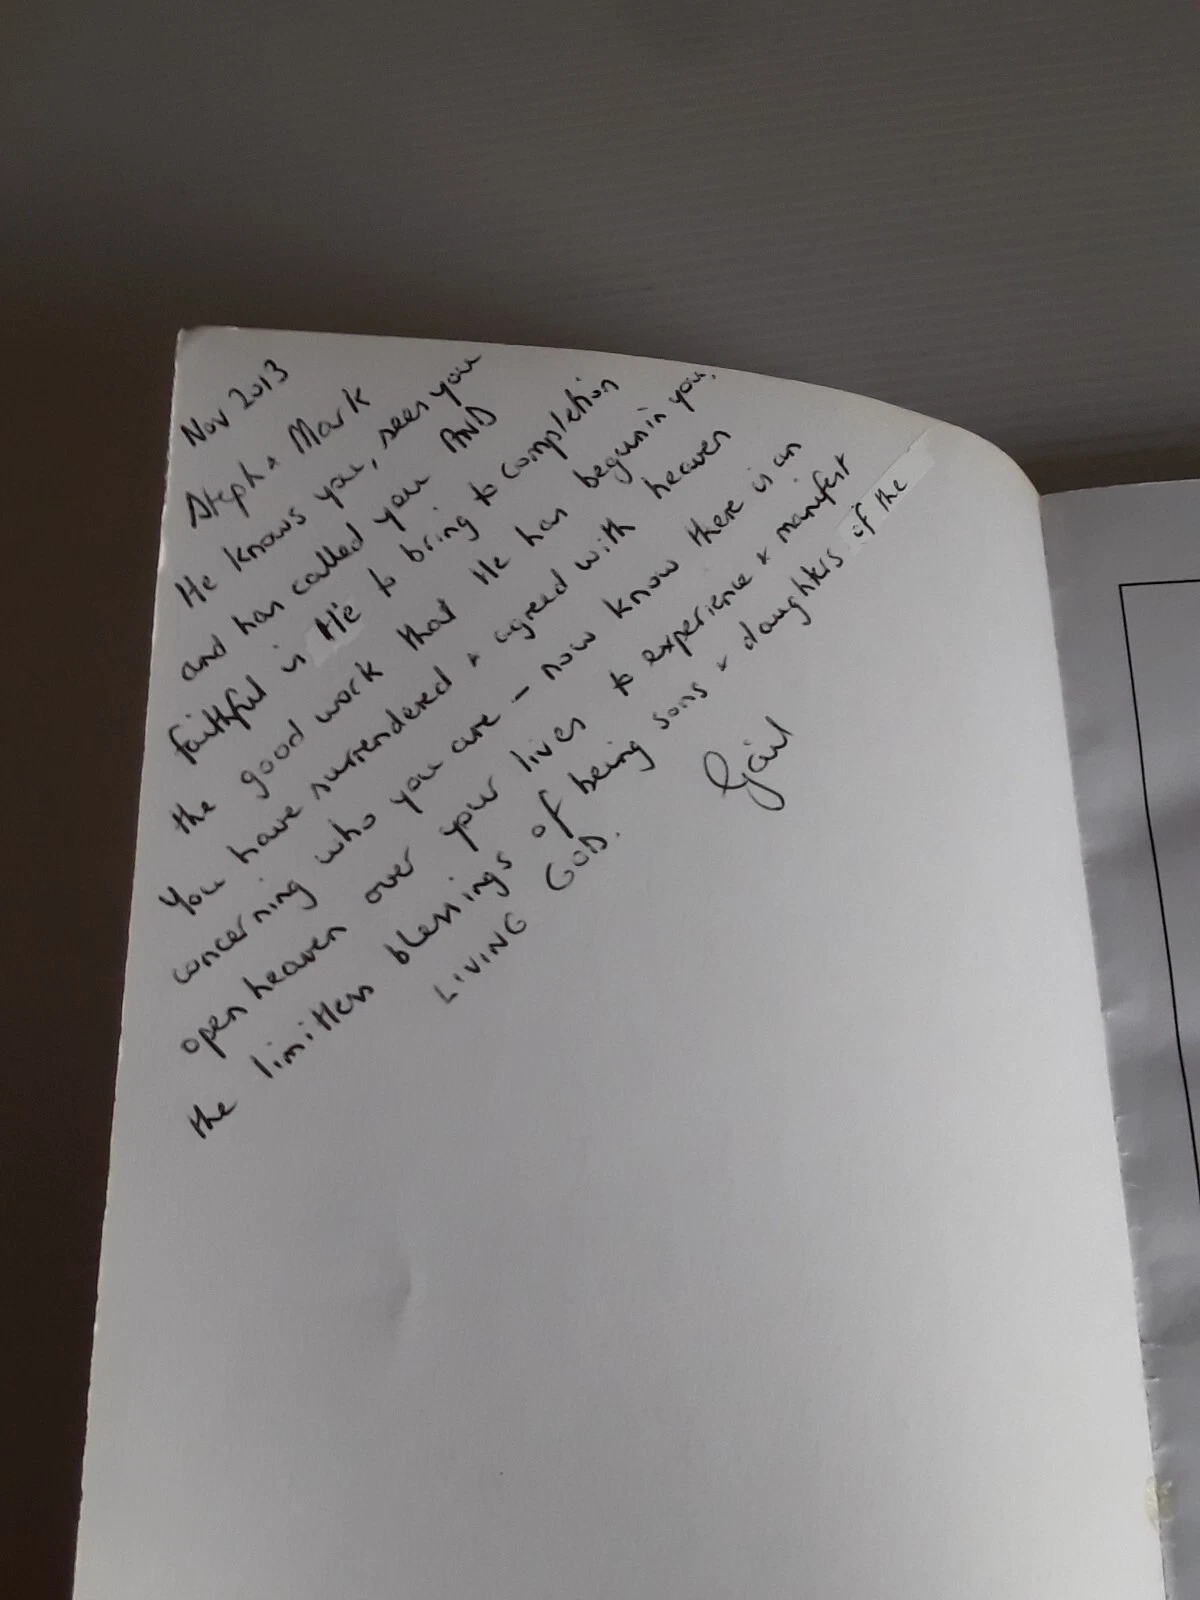 Nov 2013
Steph & Mark
He knows you, sees you
and has called you AND
faithful is He to bring to completion
the good work that He has begun in you,
You have surrendered & agreed with heaven
concerning who you are - now know there is an
open heaven over your lives to experience & manifest
the limitless blessings of being sons & daughters of the
LIVING GOD.
Gail